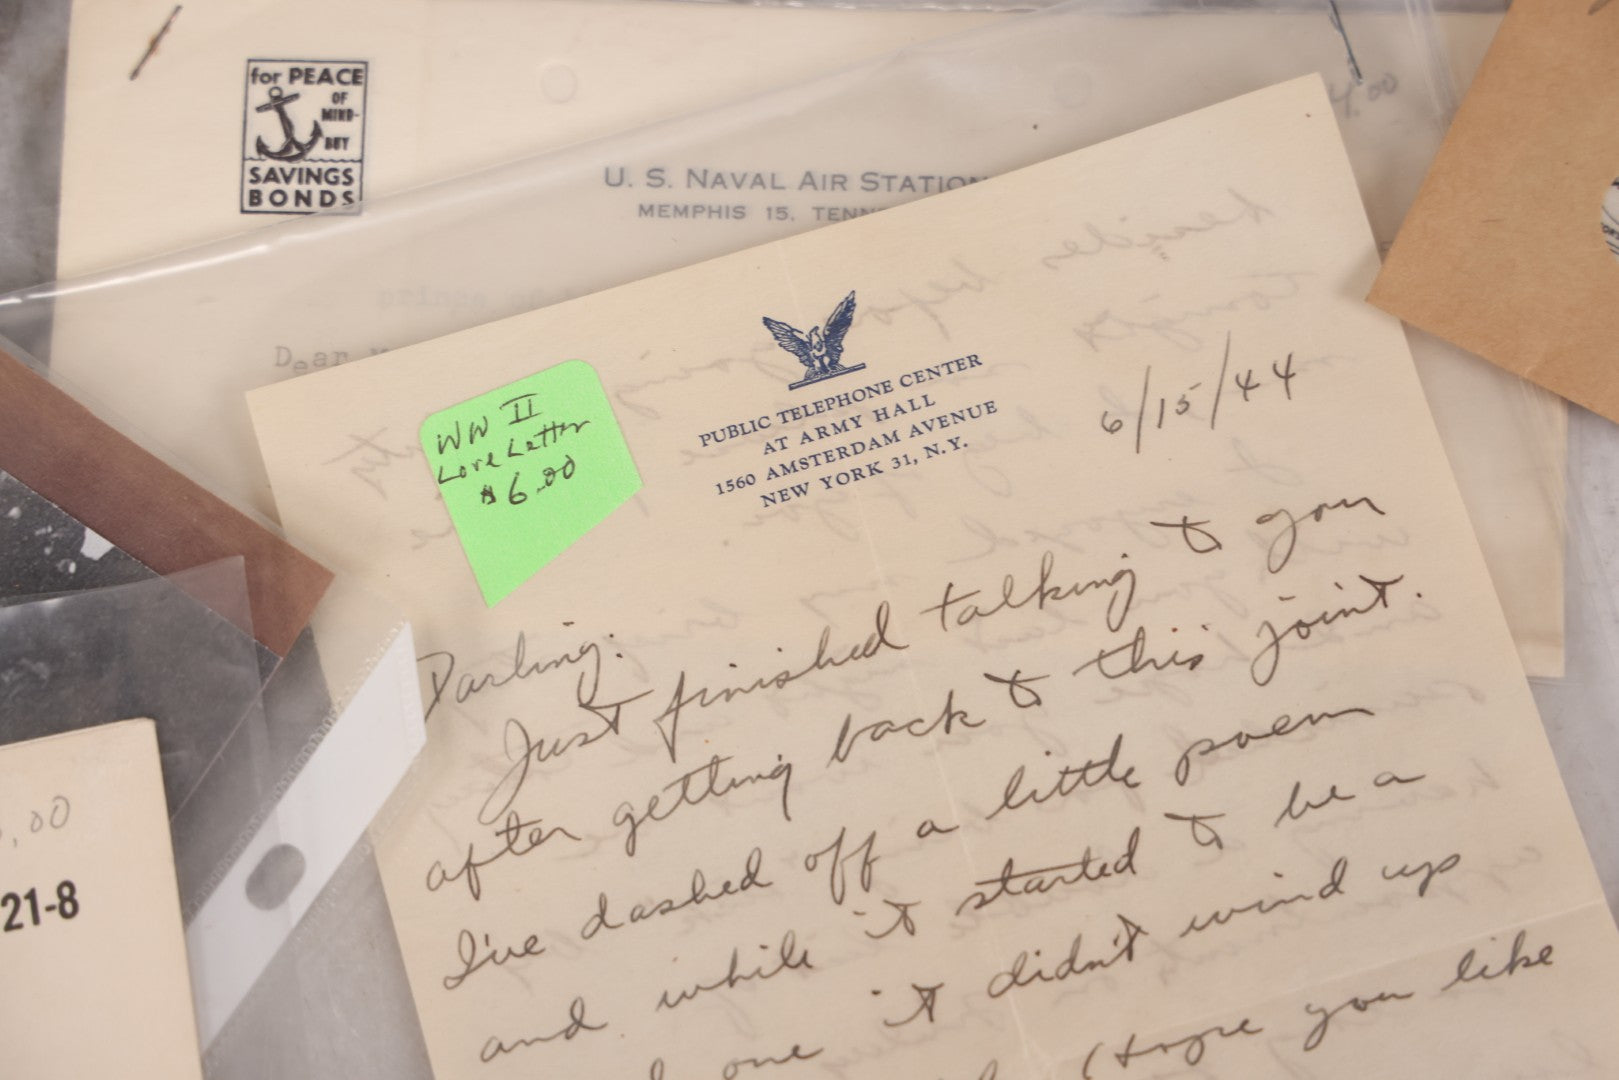 for PEACE
OF
MIND-
BUY
SAVINGS
BONDS
4.00
U. S. NAVAL AIR STATION
MEMPHIS 15, TENN
Dear
PUBLIC TELEPHONE CENTER
AT ARMY HALL
1560 AMSTERDAM AVENUE
NEW YORK 31, N.Y.
6/15/44
WW II
Love Letter
$6.00
Darling:
Just finished talking to you
after getting back to this joint.
I've dashed off a little poem
and while it started to be a
one it didn't wind up
(Hope you like
.00
21-8